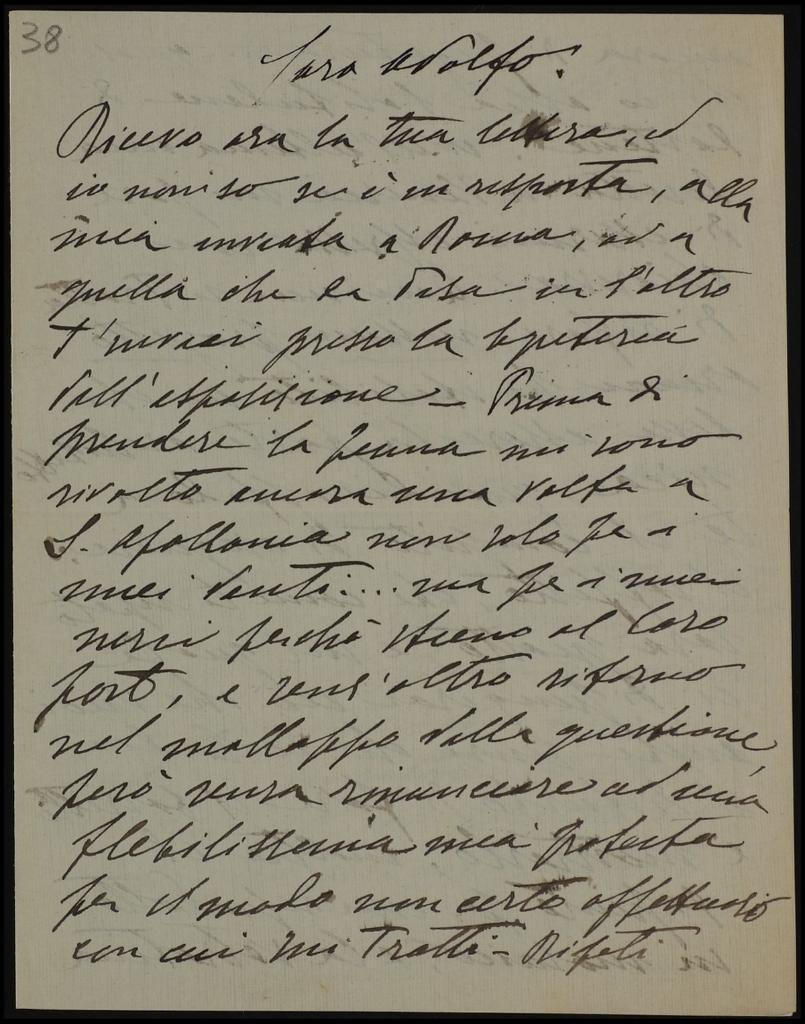 38
Caro Adolfo!
Ricevo ora la tua lettera, ed
io non so se è in risposta, alla
mia inviata a Roma, od a
quella che da Pisa ier l'altro
t'inviai presso la segreteria
dell'esposizione - Prima di
prendere la penna mi sono
rivolto ancora una volta a
S. Apollonia non solo pe i
miei denti.... ma pe i miei
nervi perchè stieno al loro
post, e senz'altro ritorno
nel malloppo della questione,
però senza rinunciare ad una
flebilissima mia protesta
per il modo non certo affettuoso
con cui mi tratti - Ripeti